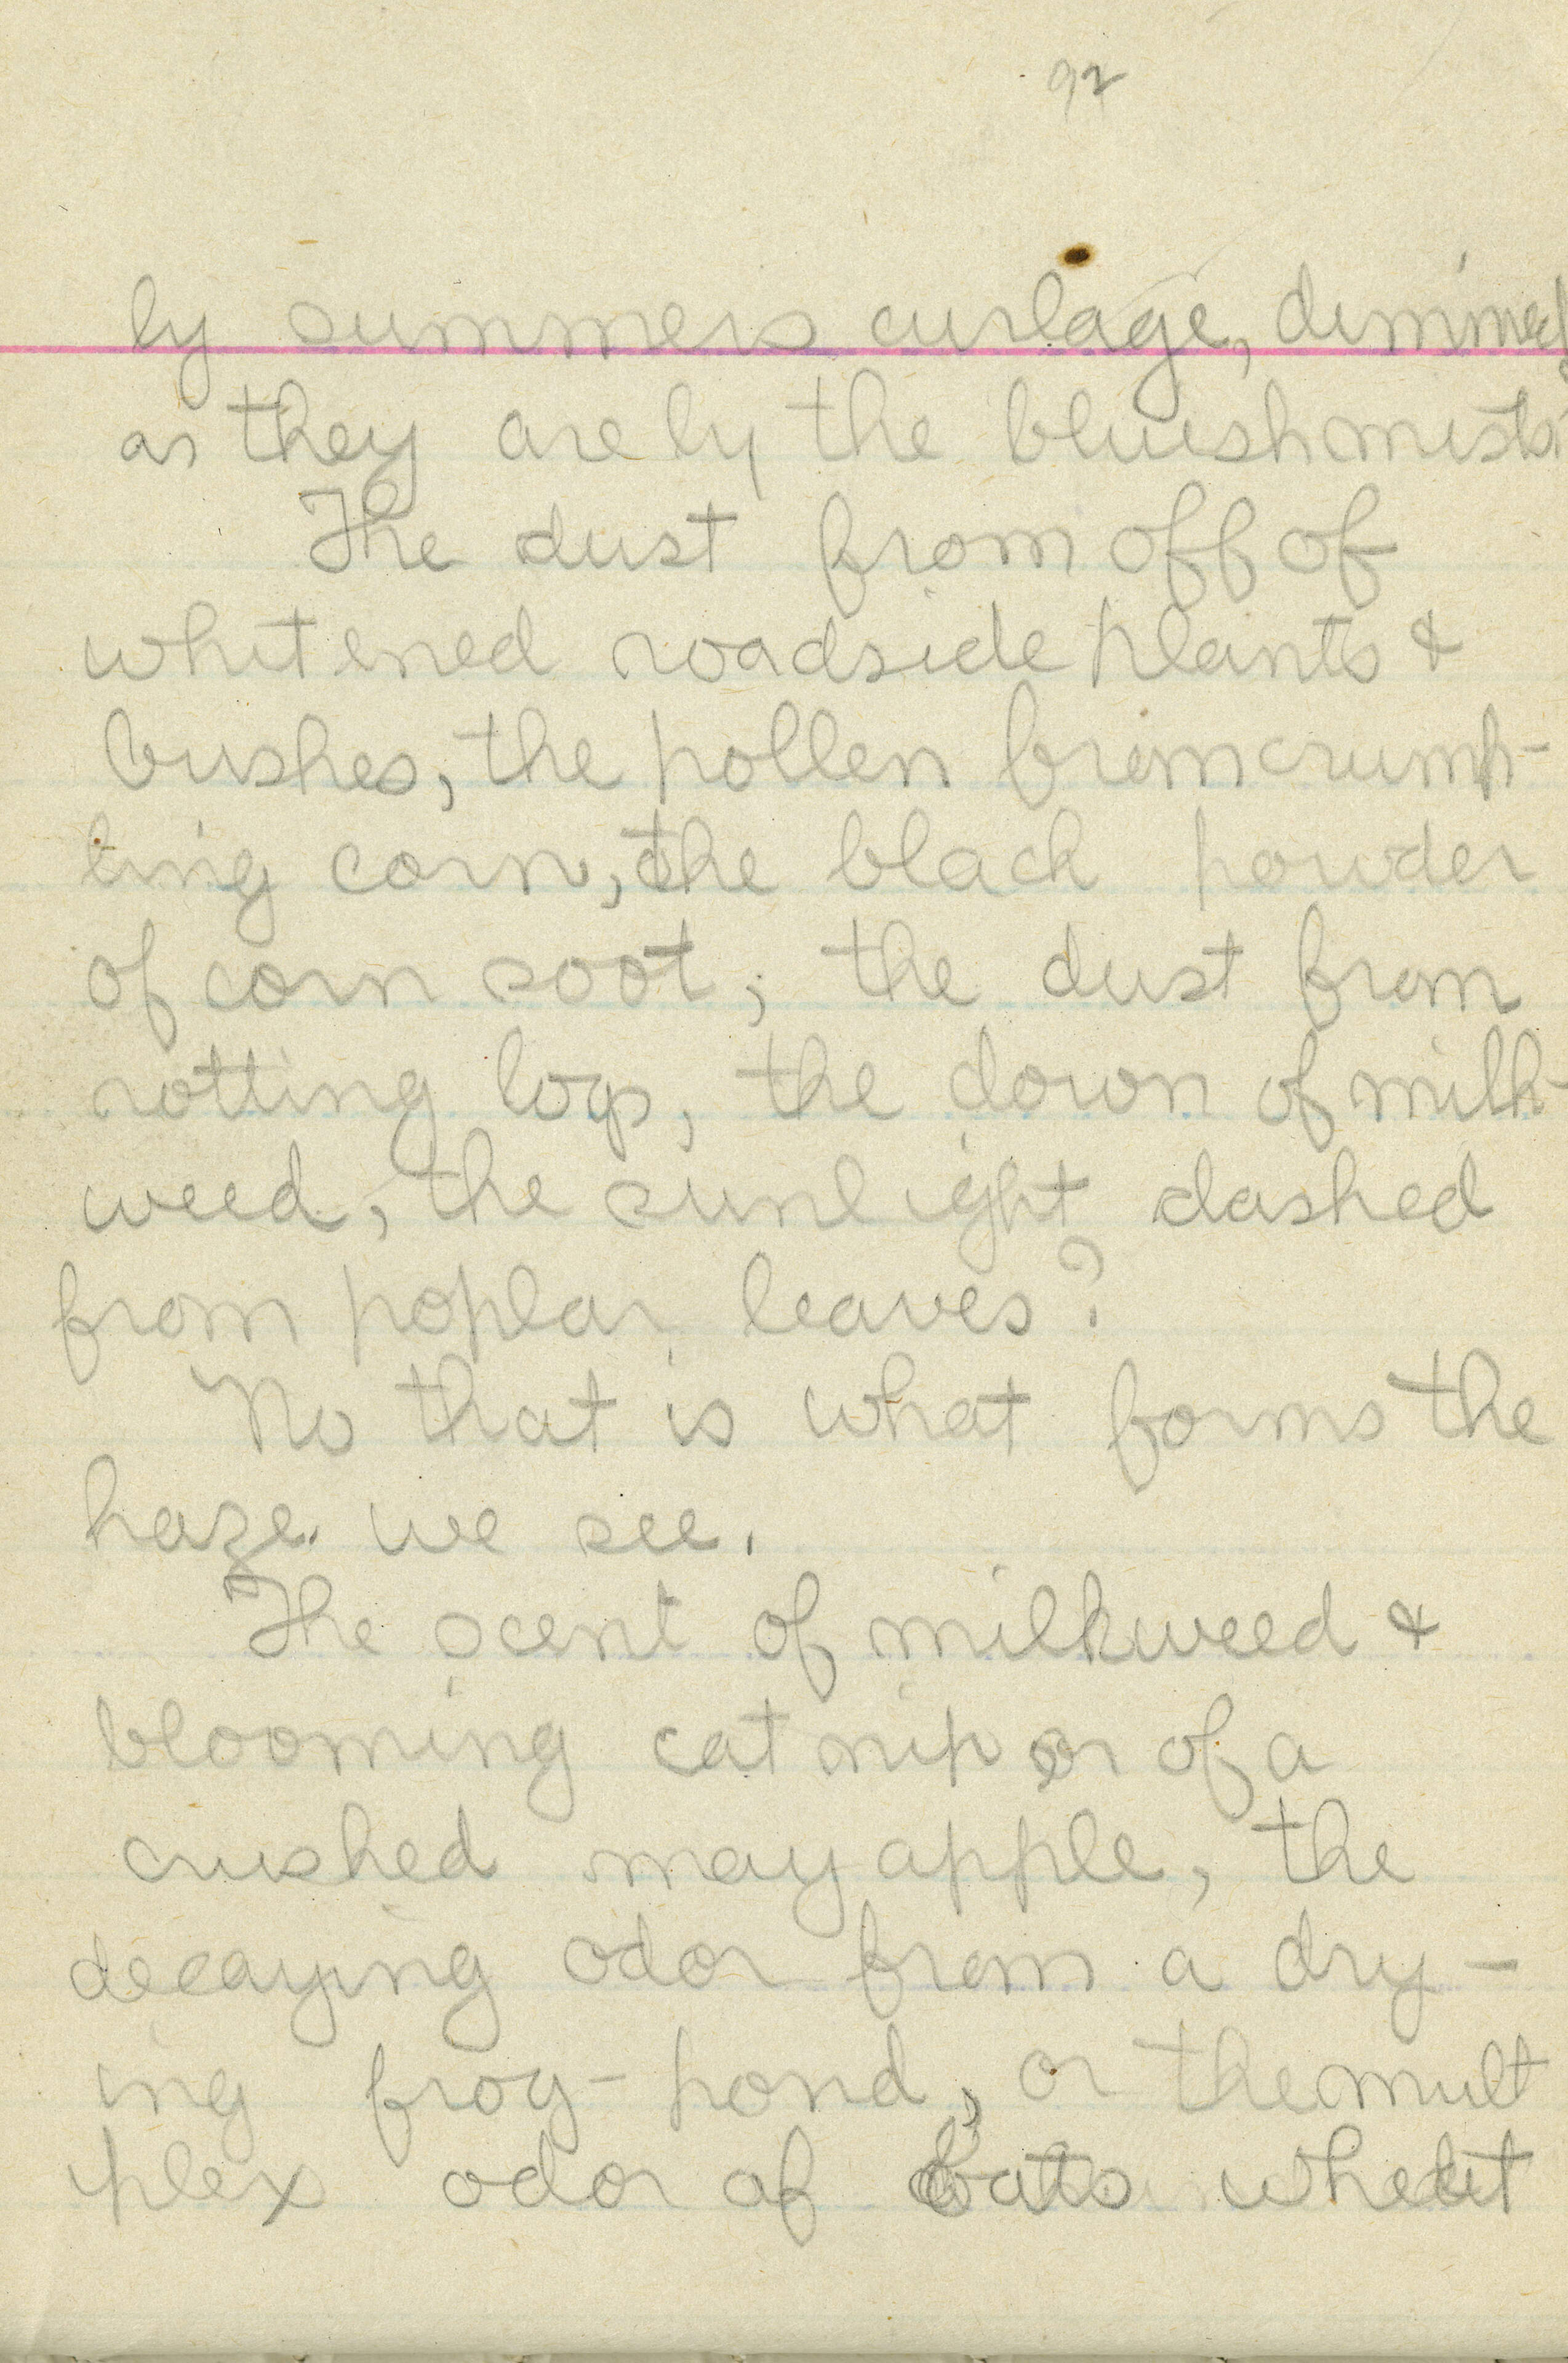 92
by summers curlage, dimmed
as they are by the bluish mists.
The dust from off of
whitened roadside plants &
bushes, the pollen from crumb-
ling corn, the black powder
of corn soot, the dust from
rotting logs, the down of milk-
weed, the sunlight dashed
from poplar leaves?
No that is what forms the
haze we see.
The scent of milkweed &
blooming cat nip or of a
crushed may apple, the
decaying odor from a dry-
ing frog-pond, or the mult
plex odor of oats wheat